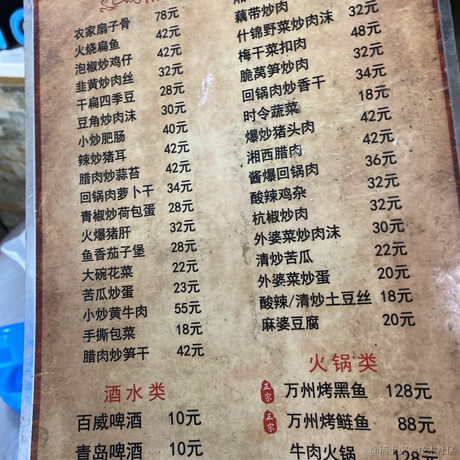 农家扇子骨 78元
火烧扁鱼 42元
泡椒炒鸡仔 42元
韭黄炒肉丝 32元
干扁四季豆 28元
豆角炒肉沫 30元
小炒肥肠 40元
辣炒猪耳 42元
腊肉炒蒜苔 42元
回锅肉萝卜干 34元
青椒炒荷包蛋 28元
火爆猪肝 32元
鱼香茄子堡 28元
大碗花菜 22元
苦瓜炒蛋 23元
小炒黄牛肉 55元
手撕包菜 18元
腊肉炒笋干 42元
酒水类
百威啤酒 10元
青岛啤酒 10元
藕带炒肉
什锦野菜炒肉沫 32元
梅干菜扣肉 48元
脆莴笋炒肉 32元
回锅肉炒香干 34元
时令蔬菜 18元
爆炒猪头肉 42元
湘西腊肉 42元
酱爆回锅肉 36元
酸辣鸡杂 32元
杭椒炒肉 32元
外婆菜炒肉沫 30元
清炒苦瓜 22元
外婆菜炒蛋 20元
酸辣/清炒土豆丝 18元
麻婆豆腐 20元
火锅类
正宗 万州烤黑鱼 128元
正宗 万州烤鲢鱼 88元
牛肉火锅 128元